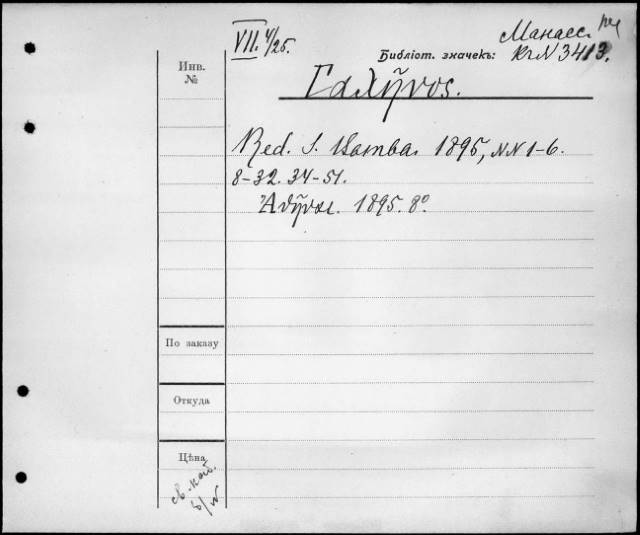 VII. 4/25.
Манасс.
Библіот. значекъ: Kr N 3413.
Инв.
№
Γαλῆνος.
Red. S. Kamba. 1895, NN 1-6.
8-32. 34-51.
Ἀθῆναι. 1895. 8º
По заказу
Откуда
Цѣна
св. каб.